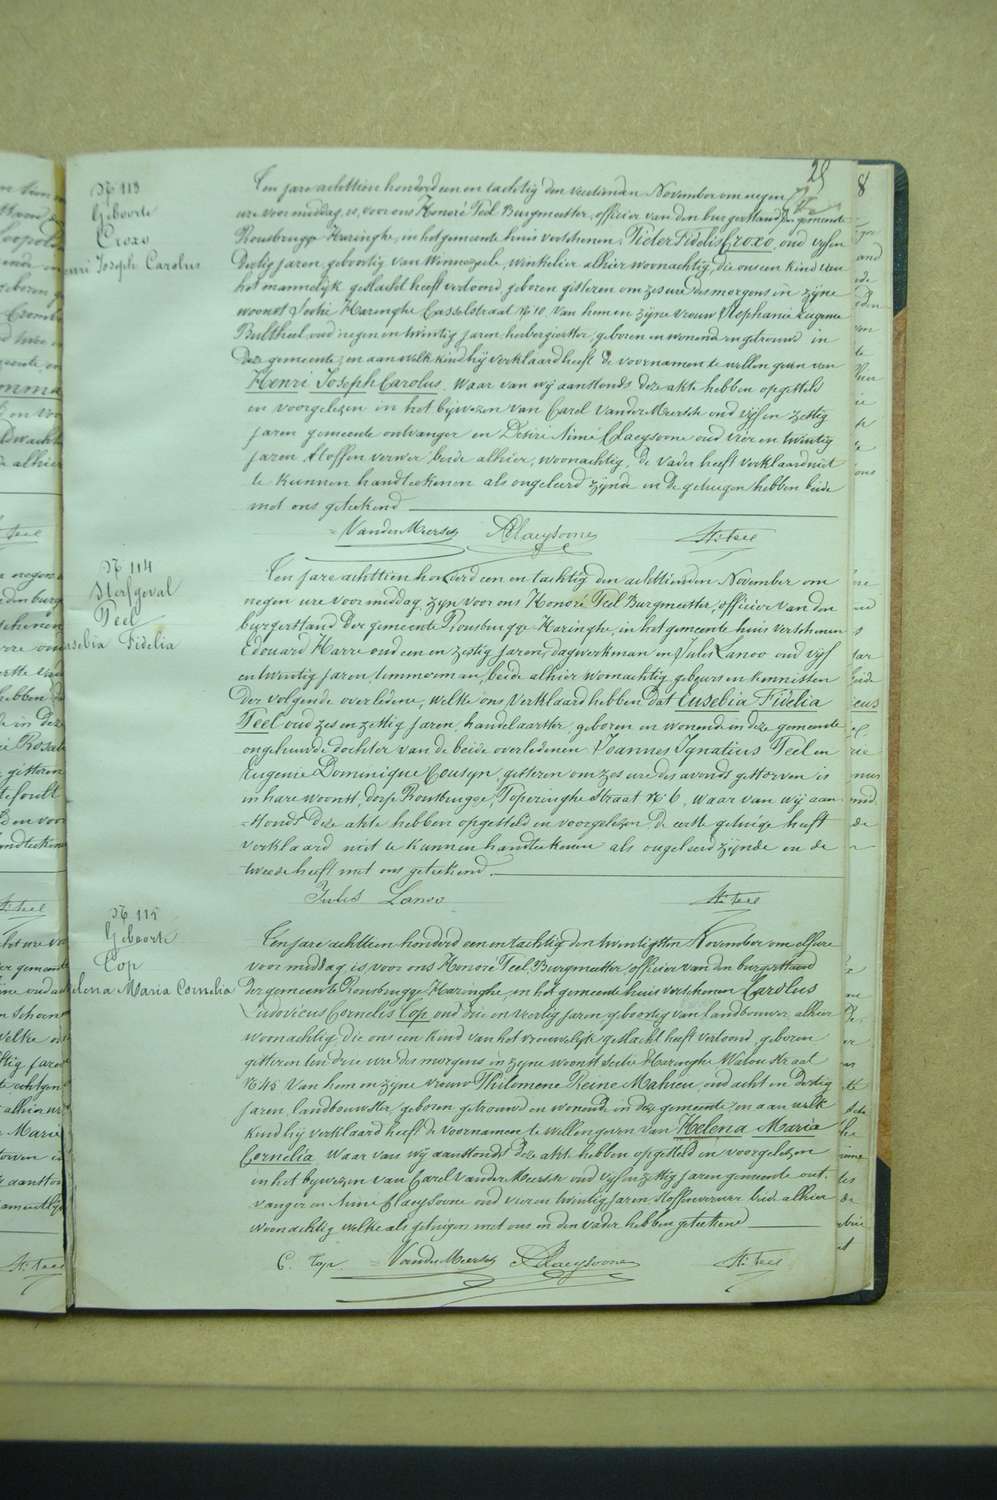 28
N 113
Geboorte
Croxo
Henri Joseph Carolus
Een jare achttien honderd een en tachtig den November om negen
ure voormiddag, is, voor ons Honoré Teel Burgmeester, officier van den burgerstand der gemeente
Rousbrugge Haringhe, in het gemeente huis verschenen, Pieter Fidelis Croxo, oud vijf en
dertig jaren, geboortig van Winnezeele, winkelier alhier woonachtig, die ons een kind van
het mannelijk geslacht heeft vertoond, geboren gisteren om zes ure des morgens in zijne
woonst Sectie Haringhe Casselstraat N 10, van hem en zijne vrouw Stephanie Eugenie
Bultheel, oud negen en twintig jaren, herbergierster, geboren en wonend en getrouwd in
deze gemeente, en aan welk kind hij verklaard heeft de voornamen te willen geven van
Henri Joseph Carolus. Waar van wij aanstonds deze akte hebben opgesteld
en voorgelezen in het bijwezen van Carel VanderMeersch oud vijf en zestig
jaren gemeente ontvanger en Desiré Aimé Claeysoone oud vier en twintig
jaren stoffen verwer, beide alhier, woonachtig, de vader heeft verklaard niet
te kunnen handteekenen als ongeleerd zijnde en de getuigen hebben beide
met ons geteekend
VanderMeersch AClaeysoone H. Teel
N 114
Sterfgeval
Teel
Eusebia Fidelia
Een jare achttien honderd een en tachtig den achttienden November om
negen ure voormiddag, zijn voor ons Honoré Teel Burgmeester, officier van den
burgerstand der gemeente Rousbrugge Haringhe, in het gemeente huis verschenen
Edouard Harre oud een en zestig jaren, dagwerkman en Jules Lanoo oud vijf
en twintig jaren timmerman, beide alhier woonachtig gebuers en kennissen
der volgende overledene, welke ons verklaard hebben dat Eusebia Fidelia
Teel oud zes en zestig jaren, handelaarster, geboren en wonend in deze gemeente
ongehuwde dochter van de beide overledenen Joannes Ignatius Teel en
Eugenie Dominique Cousyn, gisteren om zes ure des avonds gestorven is
in hare woonst, dorp Rousbrugge, Poperinghe straat N 6, waar van wij aan
=stonds deze akte hebben opgesteld en voorgelezen, de eerste getuige heeft
verklaard niet te kunnen handteekenen als ongeleerd zijnde en de
tweede heeft met ons geteekend.
Jules Lanoo H. Teel
N 115
Geboorte
Cop
Helena Maria Cornelia
Een jare achttien honderd een en tachtig den twintigsten November om elf ure
voormiddag is, voor ons Honoré Teel, Burgmeester, officier van den burgerstaand
der gemeente Rousbrugge Haringhe, in het gemeente huis verschenen Carolus
Ludovicus Cornelis Cop, oud drie en veertig jaren geboortig van landbouwer, alhier
woonachtig, die ons een kind van het vrouwelijk geslacht heeft vertoond, geboren
gisteren ten drie ure des morgens in zijne woonst sectie Haringhe Watou straat
N 45 Van hem en zijne vrouw Philomene Reine Mahieu, oud acht en dertig
jaren, landbouwster, geboren getrouwd en wonend in deze gemeente en aan welk
kind hij verklaard heeft de voornamen te willen geven van Helena Maria
Cornelia. Waar van wij aanstonds deze akte hebben opgesteld en voorgelezen
in het bijwezen van Carel VanderMeersch oud vijf en zestig jaren gemeente ont-
vanger en Aimé Claeysoone oud vier en twintig jaren stoffenverwer beide alhier
woonachtig welke als getuigen met ons en den vader hebben geteekend
C. Cop VanderMeersch AClaeysoone H. Teel